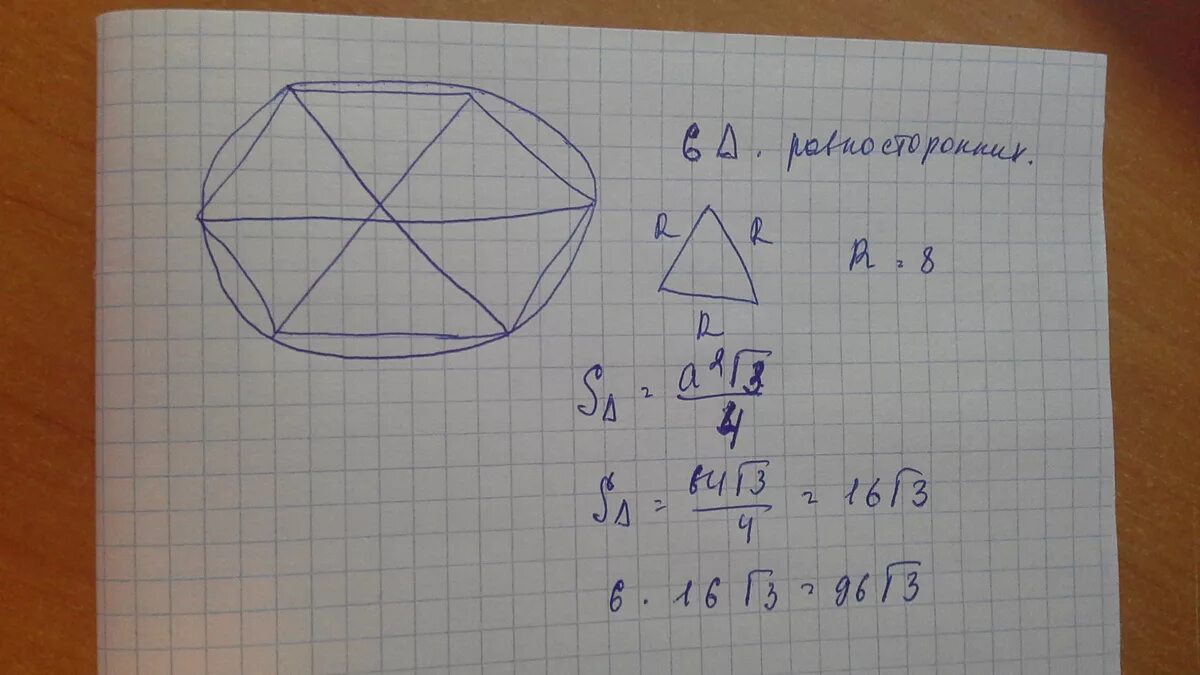 6 Δ. равносторонних.
R R R = 8
R
S_Δ = a²√3 / 4
S_Δ = 64√3 / 4 = 16√3
6 · 16√3 = 96√3